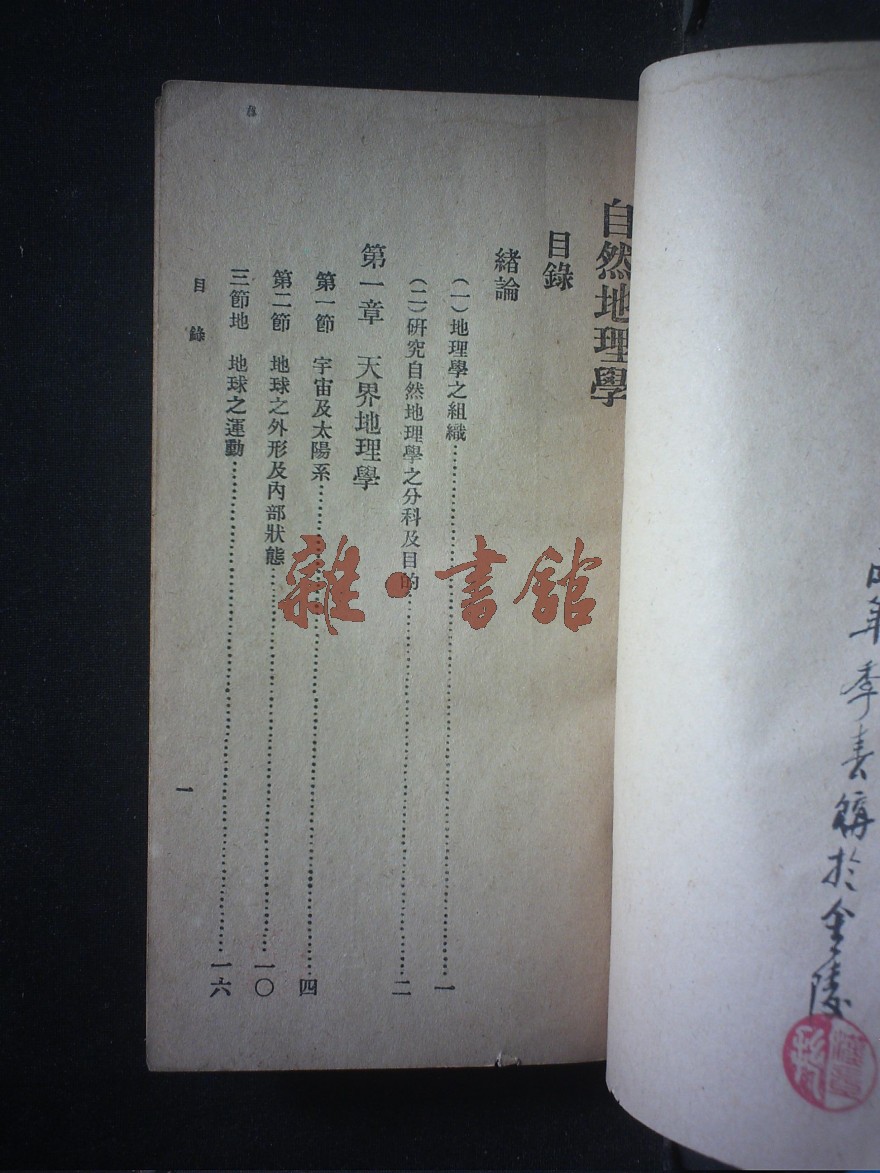 自然地理學
目錄
緒論
(一)地理學之組織…………一
(二)研究自然地理學之分科及目的…………二
第一章 天界地理學
第一節 宇宙及太陽系…………四
第二節 地球之外形及內部狀態…………一〇
三節地 地球之運動…………一六
目錄
一
年季春購於金陵
雜·書館